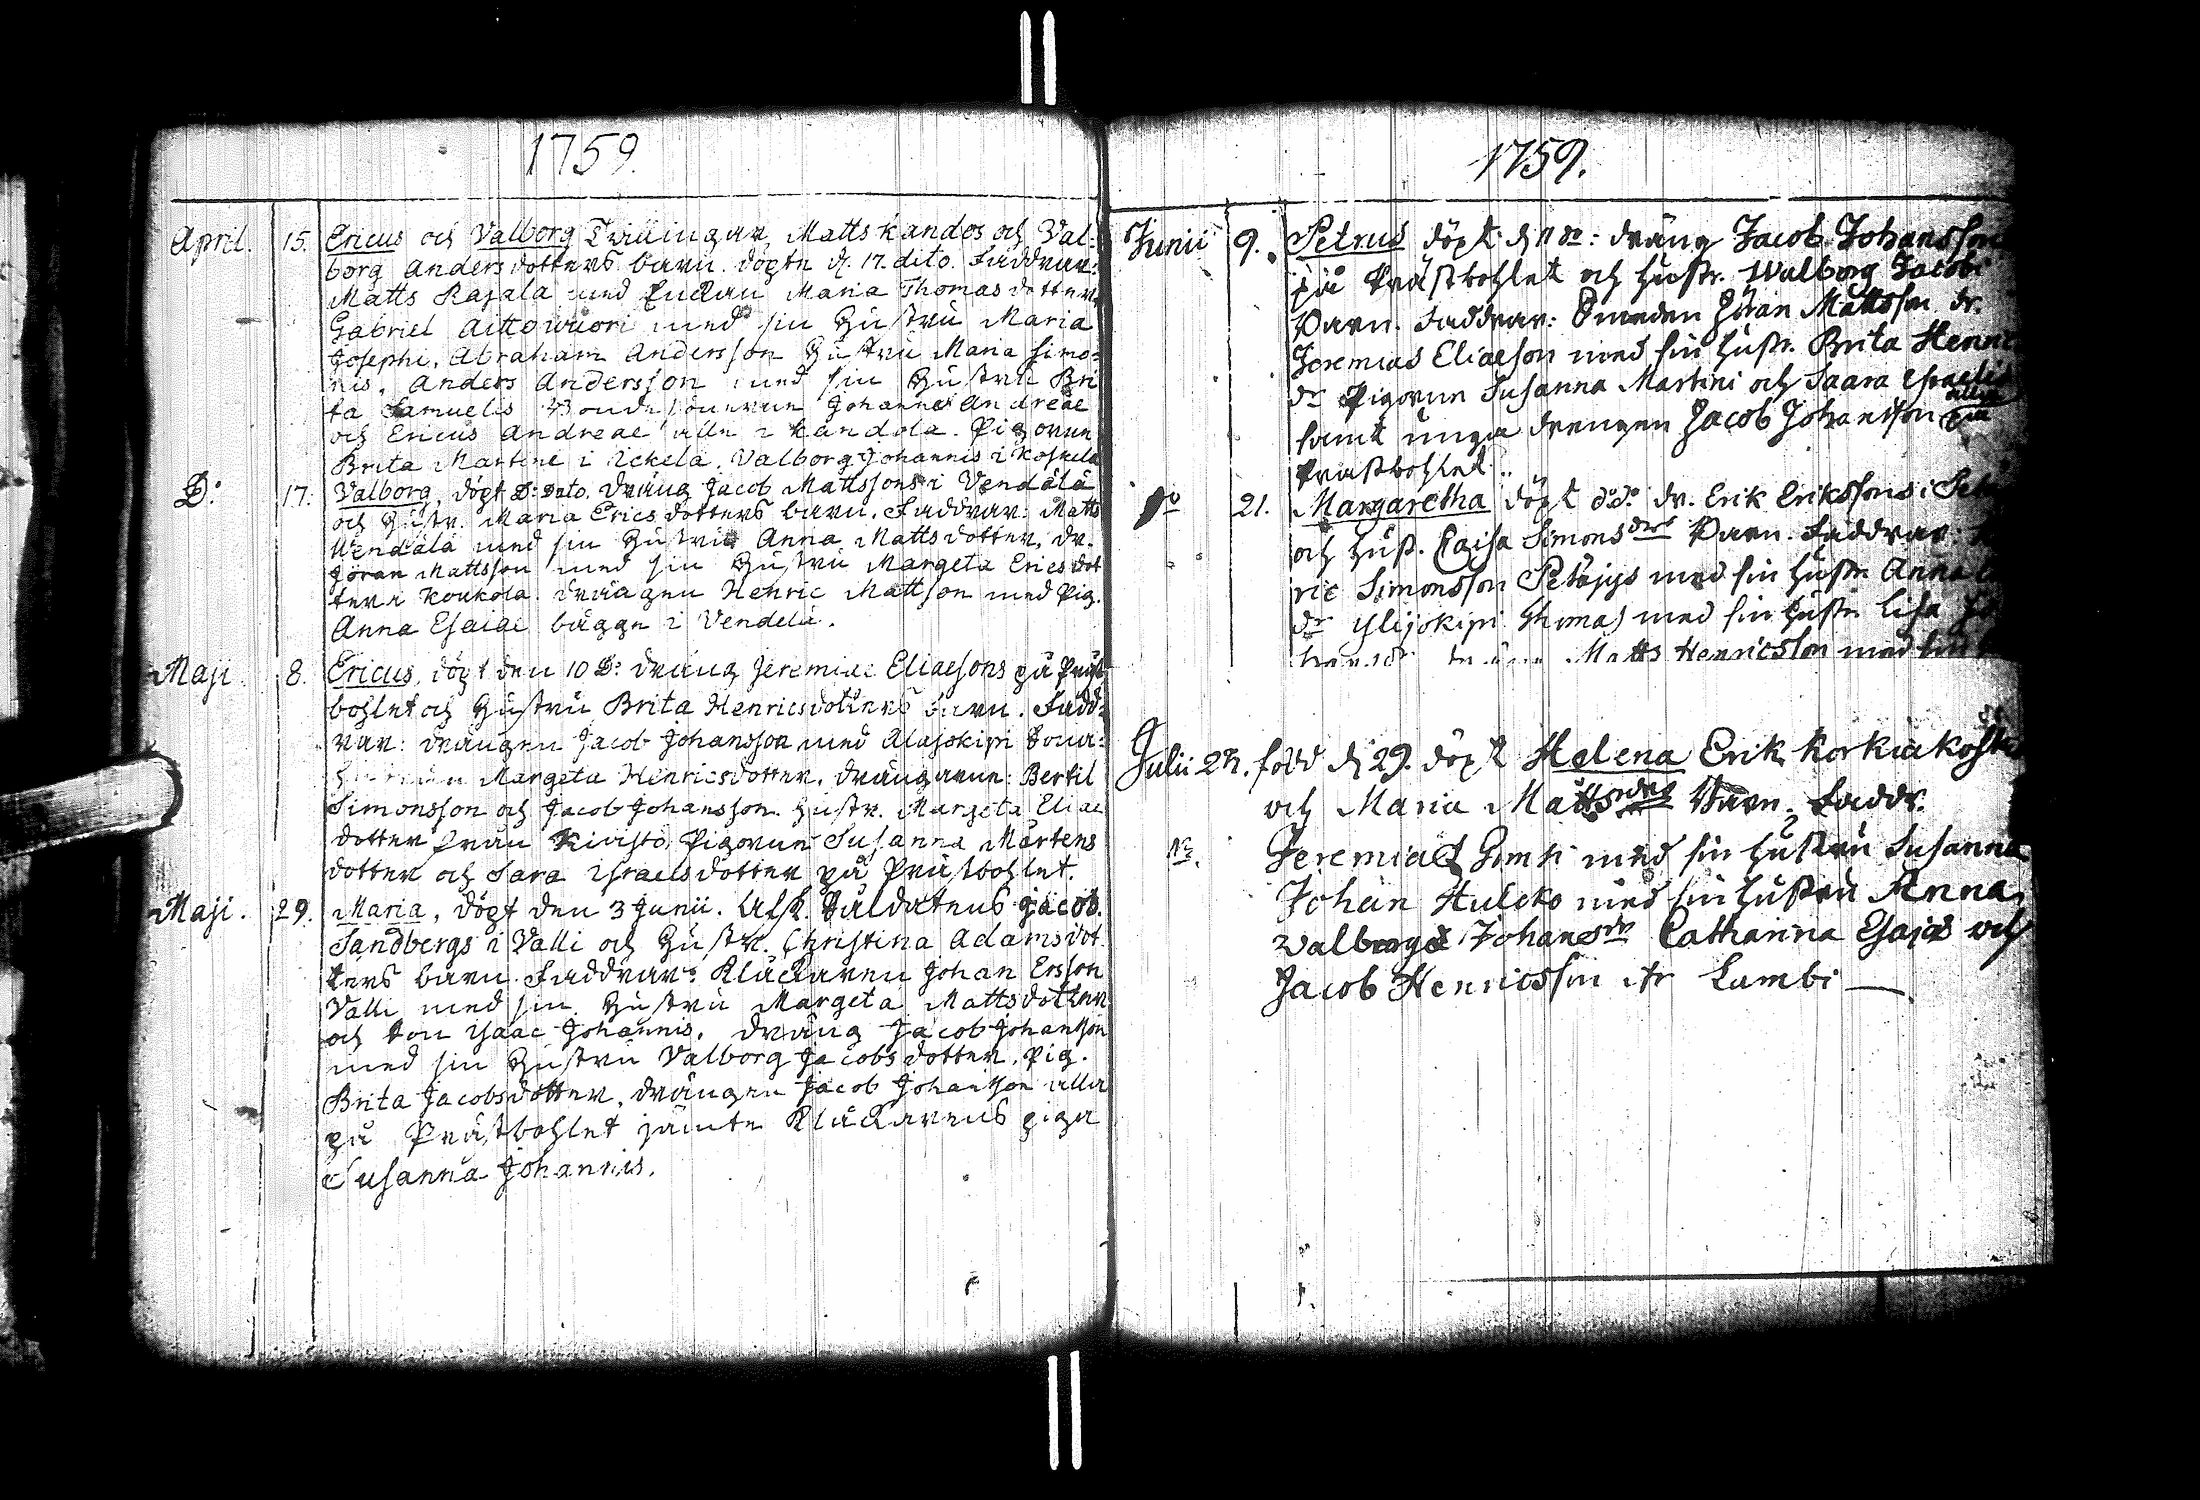 1759.
April. 15. Ericus och Valborg Tvillingar, Matts Kandos och Val-
borg Andersdotters barn. döpte d. 17. dito. Faddrar:
Matts Rajala med Enckan Maria Thomasdotter,
Gabriel Aittowuori med sin Hustru Maria
Josephi, Abraham Andersson Hustru Maria Simo-
nis, Anders Andersson med sin Hustru Bri
ta Samuelis Bondesönerne Johannes Andreae
och Ericus Andreae alle i Kandola. Pigorne
Brita Martini i Ickela, Valborg Johannis i Koskela
D: 17. Valborg, döpt D: dito, Dräng Jacob Mattssons i Vendälä
och Hustr. Maria Ericsdotters barn. Faddrar: Matts
Wendälä med sin Hustru Anna Mattsdotter, dr.
Jöran Mattsson med sin Hustru Margeta Ericsdot
ter i Koukola. drängen Henric Mattson med Pig.
Anna Esaiae bägge i Vendelä.
Maji. 8. Ericus, döpt den 10 D: dräng Jeremiae Eliaesons på Präst
bohlet och Hustru Brita Henricsdotters barn. Fadd-
rar: drängen Jacob Johansson med Alajokipi
Margeta Henricsdotter, drängarne: Bertil
Simonsson och Jacob Johansson. Hustr. Margeta Eliae
dotter från Kivistö, Pigorne Susanna Mårtens
dotter och Sara Israelsdotter på Prästbohlet.
Maji. 29. Maria, döpt den 3 Junii. Afsk. Saldatens Jacob
Sandbergs i Valli och Hustr. Christina Adamsdot
ters barn. Faddrar: Klåckaren Johan Ersson
Valli med sin Hustru Margeta Mattsdotter
och Son Isaac Johannis, dräng Jacob Johansson
med sin Hustru Valborg Jacobsdotter, Pig.
Brita Jacobsdotter, drängen Jacob Johansson alla
på Prästbohlet jämte Klåckarens piga
Susanna Johannis.
1759.
Junii 9. Petrus döpt d. 11 do: dräng Jacob Johansson
på Prästbohlet och Hustr. Walborg Jacobi
Barn. Faddrar: Smeden Jöran Mattson, dr.
Jeremias Eliaeson med sin Hustr. Brita Henric
dr Pigorne Susanna Martini och Saara Israelis
samt unga drengen Jacob Johansson alla på
Prästbohlet.
do 21. Margaretha döpt d:do dr. Erik Erikssons i
och Hust. Caisa Simonsdrs Barn. Faddrar:
ric Simonsson Petäjys med sin Hustr. Anna
dr Ylijokipi Thomas med sin Hustr. Lisa
Matts Henricsson med sin
Julii 27. född d. 29. döpt Helena Erik Korkiakoski
och Maria Mattsdrs Barn. Faddr.
Jeremias med sin Hustru Susanna
Johan Huleko med sin Hustru Anna,
Walborg Johansdr Catharina Esajæ och
Jacob Henricsson Lambi